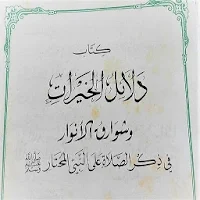 كتاب
دلائل الخيرات
وشوارق الأنوار
في ذكر الصلاة على النبي المختار ﷺ